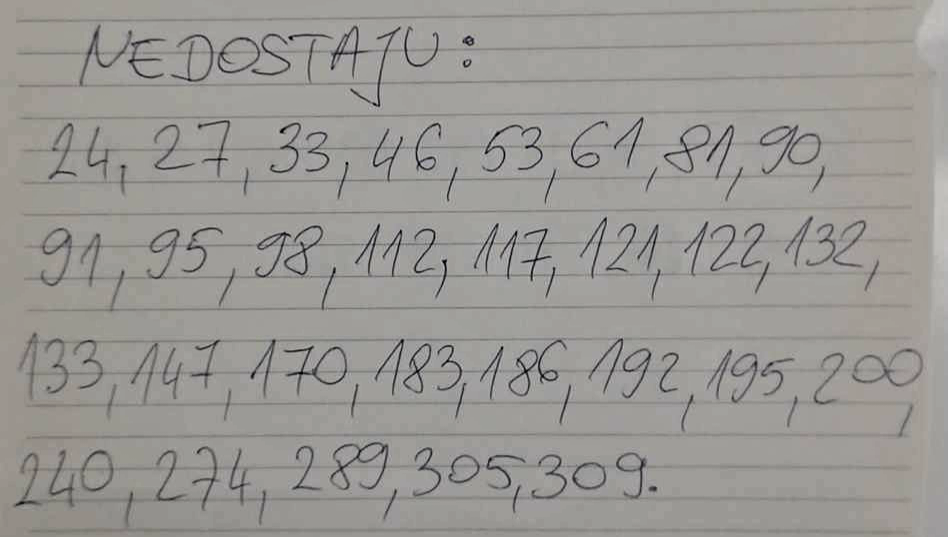 NEDOSTAJU:
24, 27, 33, 46, 53, 61, 81, 90,
91, 95, 98, 112, 117, 121, 122, 132,
133, 147, 170, 183, 186, 192, 195, 200,
240, 274, 289, 305, 309.